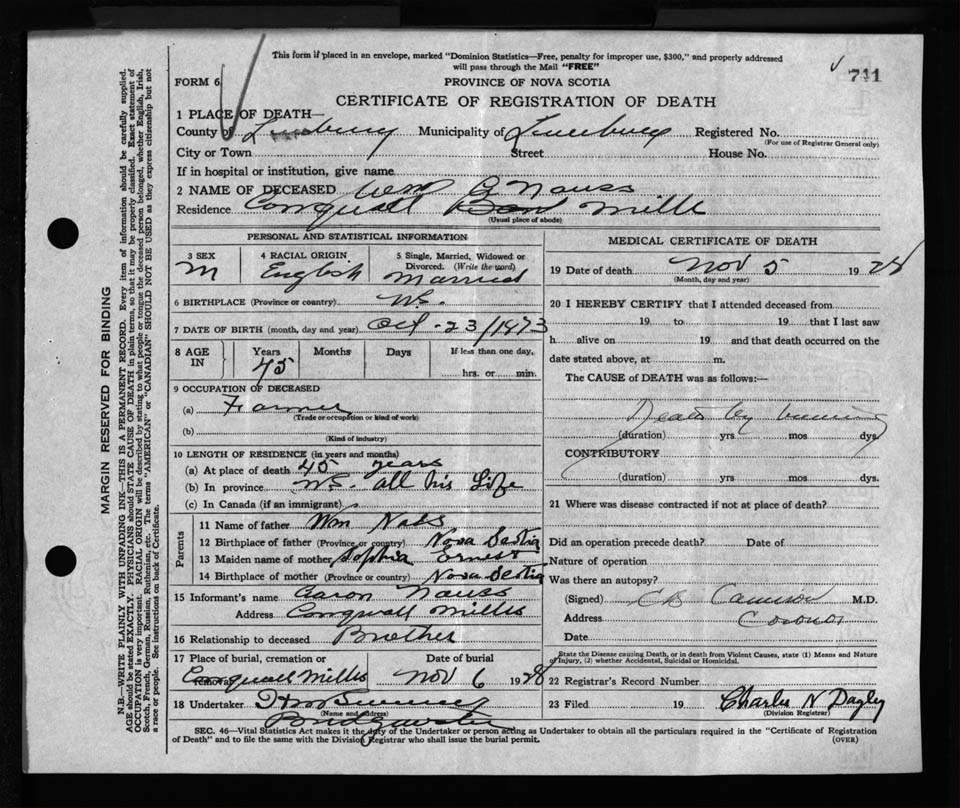 This form if placed in an envelope, marked "Dominion Statistics—Free, penalty for improper use, $300," and properly addressed
will pass through the Mail "FREE"
741
FORM 6
PROVINCE OF NOVA SCOTIA
CERTIFICATE OF REGISTRATION OF DEATH
1 PLACE OF DEATH—
County of Lunenburg Municipality of Lunenburg Registered No.
(For use of Registrar General only)
City or Town Street House No.
If in hospital or institution, give name
2 NAME OF DECEASED Wm G Nauss
Residence Conquall Mills
(Usual place of abode)
PERSONAL AND STATISTICAL INFORMATION
3 SEX 4 RACIAL ORIGIN 5 Single, Married, Widowed or
Divorced. (Write the word)
M English Married
6 BIRTHPLACE (Province or country) N.S.
7 DATE OF BIRTH (month, day and year) Oct - 23/1873
8 AGE IN Years Months Days If less than one day,
45 hrs. or min.
9 OCCUPATION OF DECEASED
(a) Farmer
(Trade or occupation or kind of work)
(b)
(Kind of industry)
10 LENGTH OF RESIDENCE (in years and months)
(a) At place of death 45 years
(b) In province N.S. all his Life
(c) In Canada (if an immigrant)
Parents
11 Name of father Wm Nass
12 Birthplace of father (Province or country) Nova Scotia
13 Maiden name of mother Sophia Ernest
14 Birthplace of mother (Province or country) Nova Scotia
15 Informant's name Aaron Nauss
Address Conquall Mills
16 Relationship to deceased Brother
17 Place of burial, cremation or removal Date of burial
Conquall Mills Nov 6 1928
18 Undertaker
(Name and address)
Bridgewater
MEDICAL CERTIFICATE OF DEATH
19 Date of death Nov 5 1928
(Month, day and year)
20 I HEREBY CERTIFY that I attended deceased from
19 to 19 that I last saw
h alive on 19 and that death occurred on the
date stated above, at m.
The CAUSE of DEATH was as follows:—
Death by burning
(duration) yrs. mos. dys.
CONTRIBUTORY
(duration) yrs. mos. dys.
21 Where was disease contracted if not at place of death?
Did an operation precede death? Date of
Nature of operation
Was there an autopsy?
(Signed) Cameron M.D.
Address Coroner
Date
State the Disease causing Death, or in death from Violent Causes, state (1) Means and Nature
of Injury, (2) whether Accidental, Suicidal or Homicidal.
22 Registrar's Record Number
23 Filed 19 Charles N Dagley
(Division Registrar)
SEC. 46—Vital Statistics Act makes it the duty of the Undertaker or person acting as Undertaker to obtain all the particulars required in the "Certificate of Registration
of Death" and to file the same with the Division Registrar who shall issue the burial permit. (OVER)
MARGIN RESERVED FOR BINDING
N.B.—WRITE PLAINLY WITH UNFADING INK—THIS IS A PERMANENT RECORD. Every item of information should be carefully supplied.
AGE should be stated EXACTLY. PHYSICIANS should STATE CAUSE OF DEATH in plain terms, so that it may be properly classified. Exact statement of
OCCUPATION is very important. RACIAL ORIGIN will be described by stating to what people or tongue the deceased person belonged, whether English, Irish,
Scotch, French, German, Russian, Ruthenian, etc. The terms "AMERICAN" or "CANADIAN" SHOULD NOT BE USED as they express citizenship but not
a race or people. See instructions on back of Certificate.